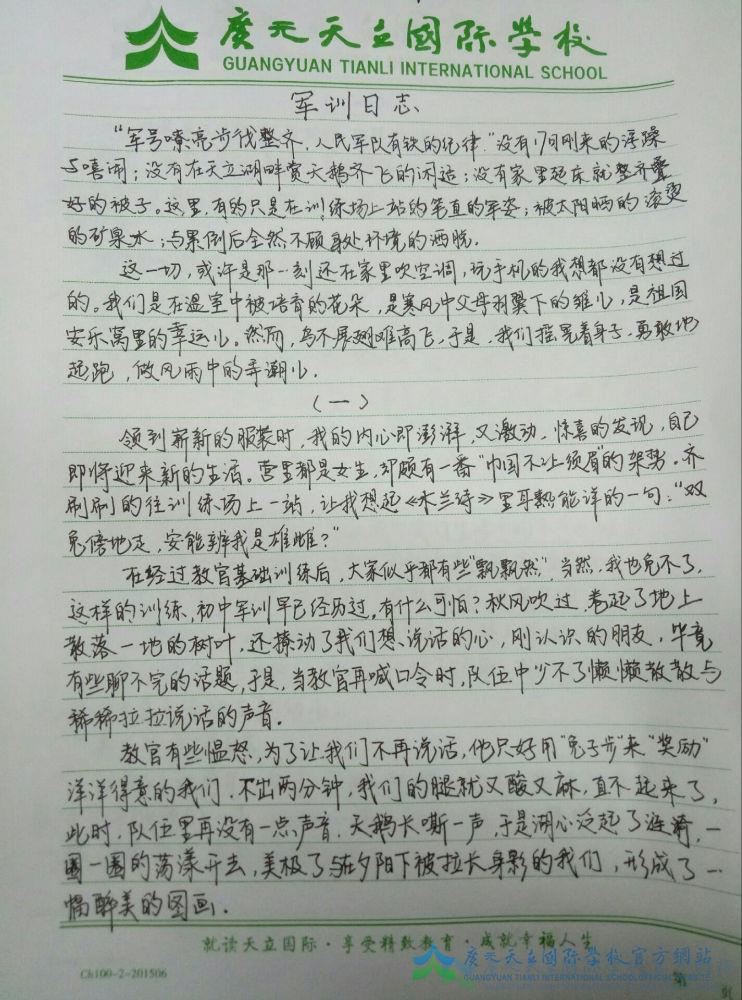 廣元天立國际学校
GUANGYUAN TIANLI INTERNATIONAL SCHOOL
军训日志
“军号嘹亮步伐整齐，人民军队有铁的纪律”没有17日刚来的浮躁
与嘻闹；没有在天立湖畔赏天鹅齐飞的闲适；没有家里起床就整齐叠
好的被子。这里，有的只是在训练场上站的笔直的军姿；被太阳晒的滚烫
的矿泉水；与累倒后全然不顾身处环境的洒脱。
这一切，或许是那一刻还在家里吹空调，玩手机的我想都没有想过
的。我们是在温室中被培育的花朵，是寒风中父母羽翼下的雏儿，是祖国
安乐窝里的幸运儿。然而，鸟不展翅难高飞，于是，我们摇晃着身子，勇敢地
起跑，做风雨中的弄潮儿。
（一）
领到崭新的服装时，我的内心即澎湃，又激动，惊喜的发现，自己
即将迎来新的生活。营里都是女生，却颇有一番“巾帼不让须眉的架势。齐
刷刷的往训练场上一站，让我想起《木兰诗》里耳熟能详的一句：“双
兔傍地走，安能辨我是雄雌？”
在经过教官基础训练后，大家似乎都有些“飘飘然”，当然，我也免不了，
这样的训练，初中军训早已经历过，有什么可怕？秋风吹过，卷起了地上
散落一地的树叶，还撩动了我们想说话的心，刚认识的朋友，毕竟
有些聊不完的话题，于是，当教官再喊口令时，队伍中少不了懒懒散散与
稀稀拉拉说话的声音。
教官有些愠怒，为了让我们不再说话，他只好用“兔子步”来“奖励”
洋洋得意的我们，不出两分钟，我们的腿就又酸又麻，直不起来了，
此时，队伍里再没有一点声音，天鹅长嘶一声，于是湖心泛起了涟漪，一
圈一圈的荡漾开去，美极了与在夕阳下被拉长身影的我们，形成了一
幅醉美的图画。
就读天立国际·享受精致教育·成就幸福人生
Ch100-2-201506
廣元天立國际学校官方網站
GUANGYUAN TIANLI INTERNATIONAL SCHOOL OFFICIAL WEBSITE